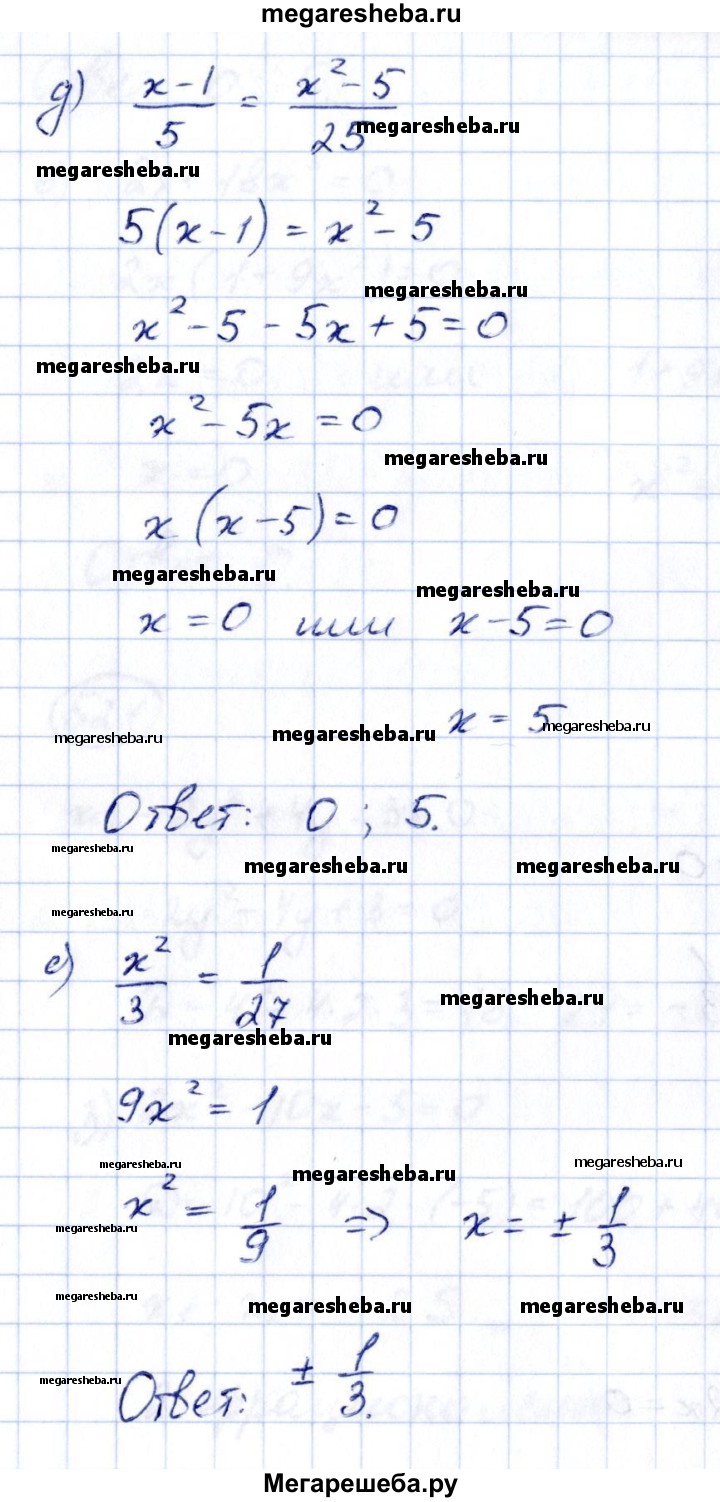 megaresheba.ru
д) x-1/5 = x²-5/25
megaresheba.ru
megaresheba.ru
5(x-1) = x²-5
megaresheba.ru
x²-5-5x+5=0
megaresheba.ru
x²-5x=0
megaresheba.ru
x(x-5)=0
megaresheba.ru
megaresheba.ru
x=0 или x-5=0
x=5
megaresheba.ru megaresheba.ru megaresheba.ru
Ответ: 0; 5.
megaresheba.ru
megaresheba.ru megaresheba.ru
megaresheba.ru
е) x²/3 = 1/27
megaresheba.ru
megaresheba.ru
9x²=1
megaresheba.ru megaresheba.ru megaresheba.ru
x² = 1/9 => x = ± 1/3
megaresheba.ru
megaresheba.ru megaresheba.ru megaresheba.ru
megaresheba.ru
Ответ: ± 1/3.
Мегарешеба.ру